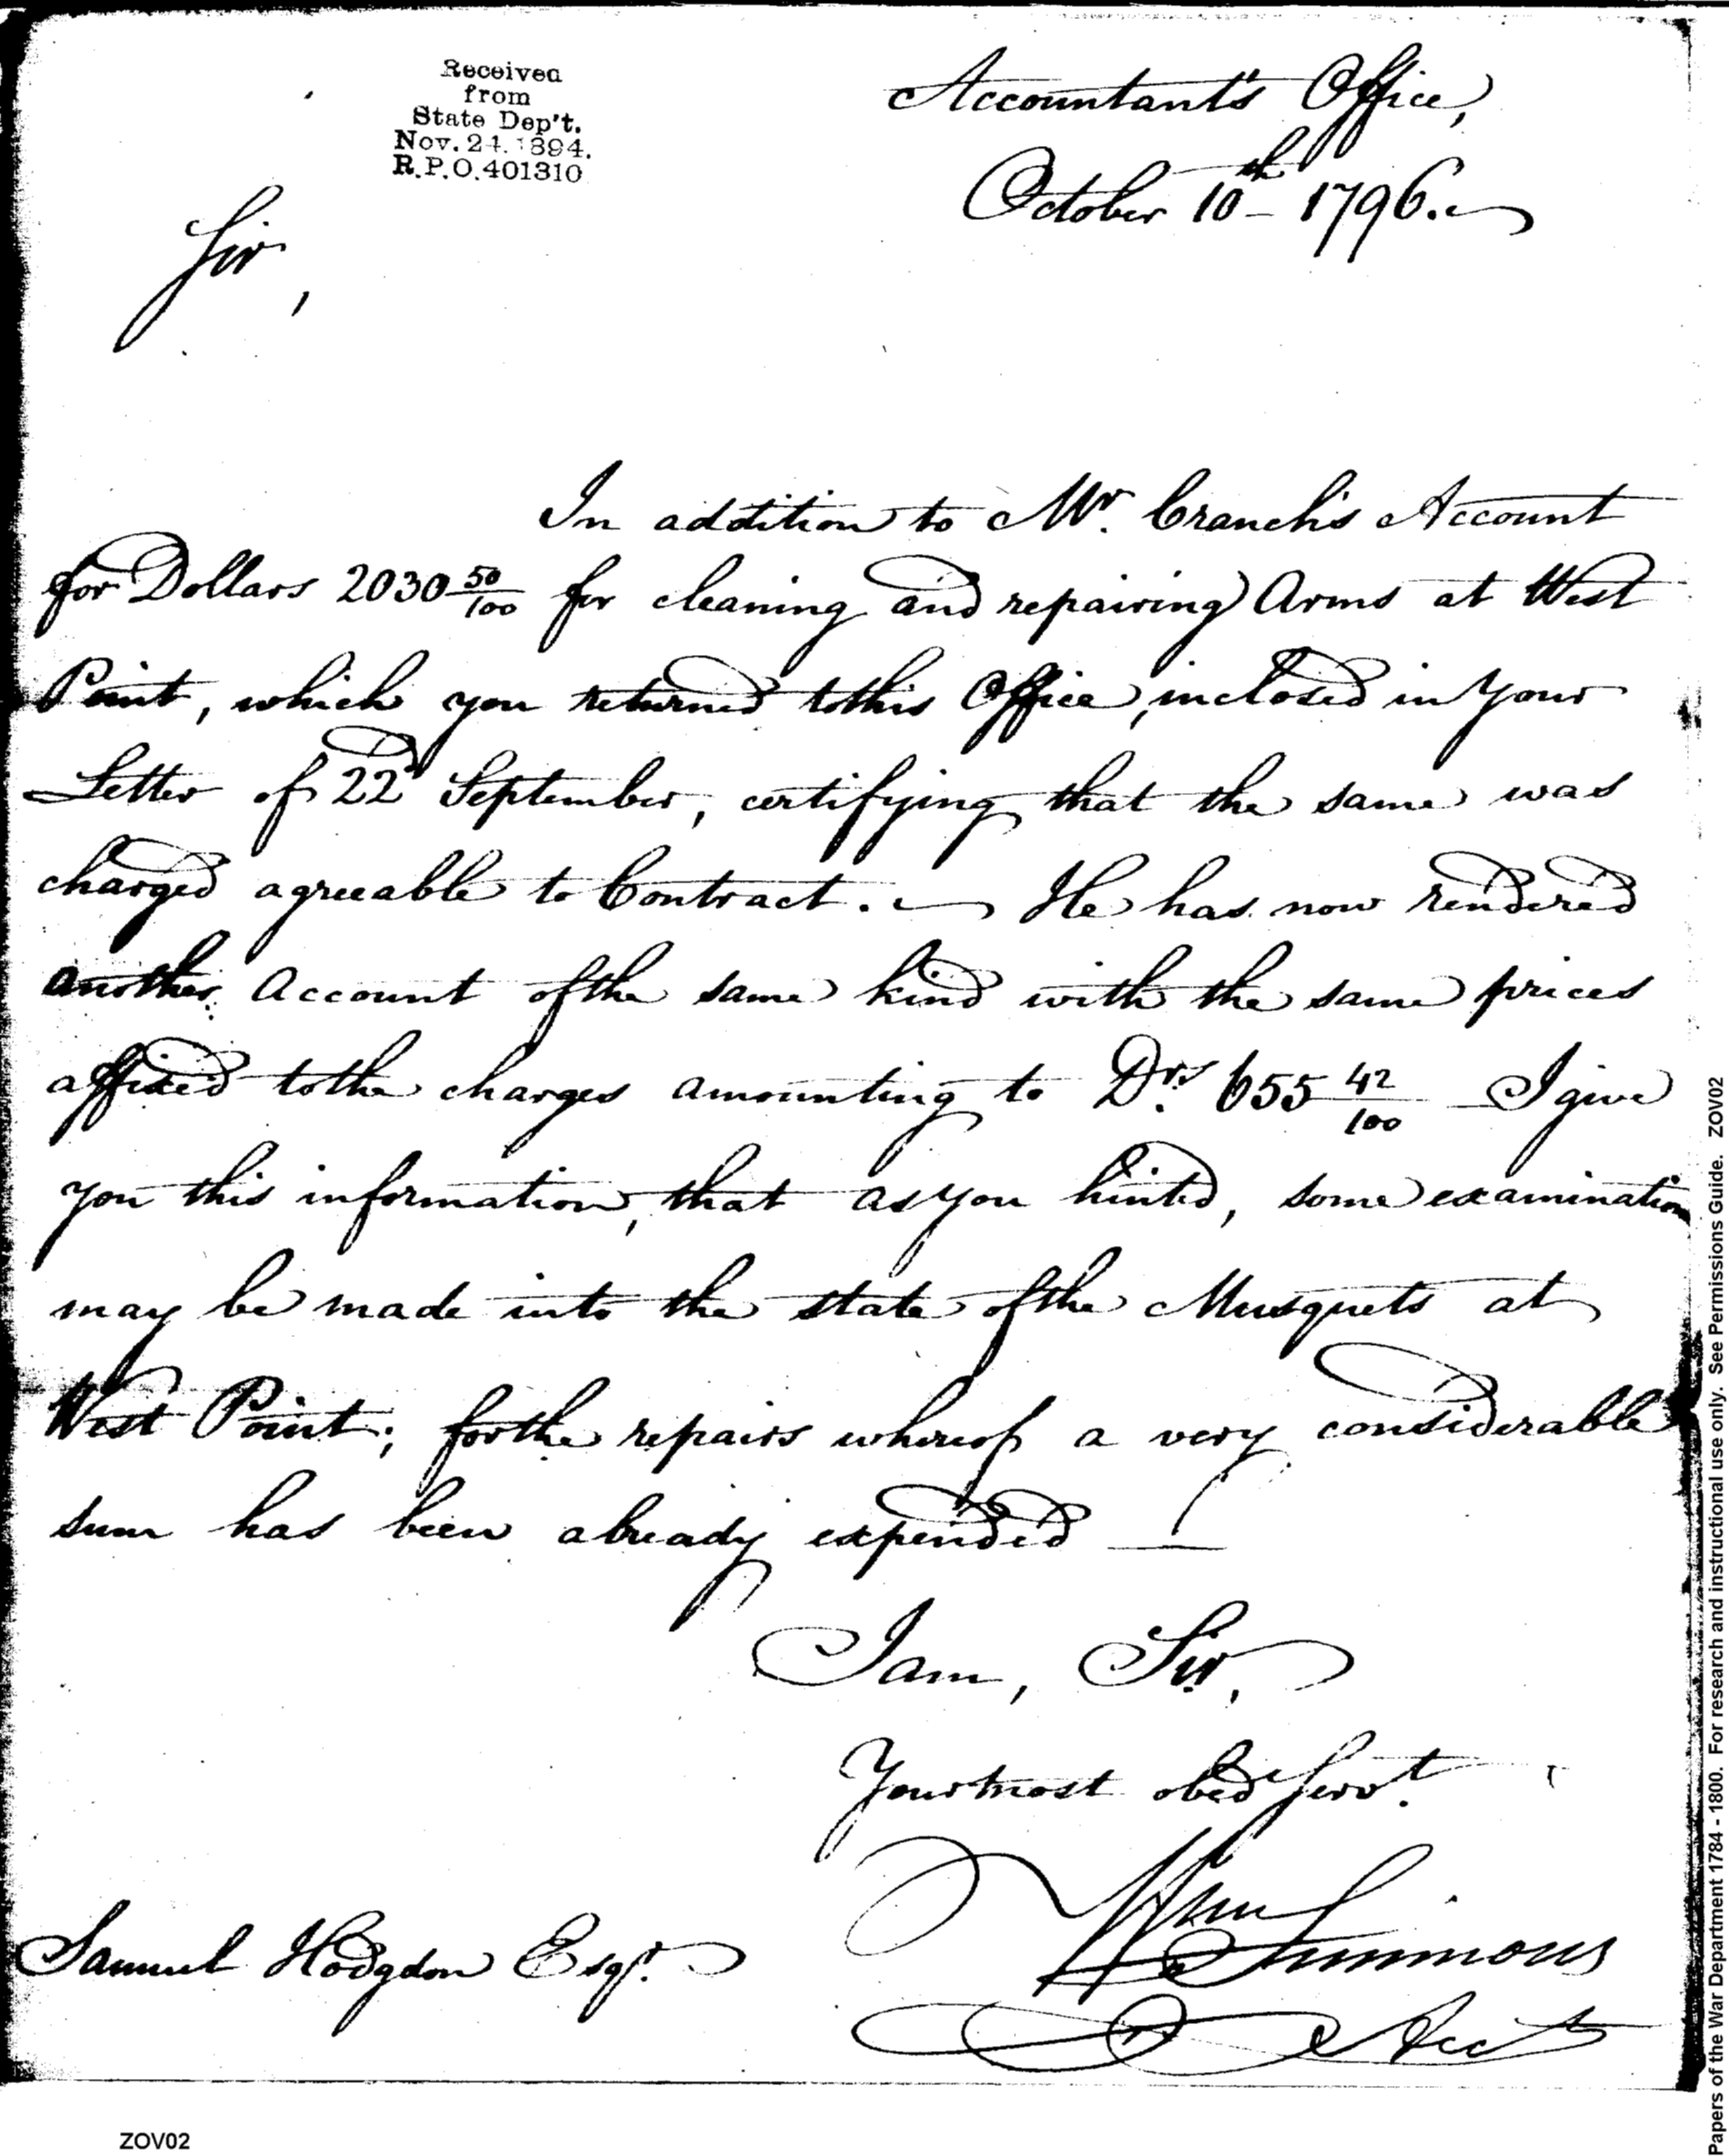 Received
from
State Dep't.
Nov. 24. 1894.
R.P.O. 401310
Accountant's Office,
October 10th 1796.
Sir,
In addition to Mr. Cranch's Account
for Dollars 2030 50/100 for cleaning and repairing Arms at West
Point, which you returned to this Office, inclosed in your
Letter of 22d September, certifying that the same was
charged agreeable to Contract. — He has now rendered
another Account of the same kind with the same prices
affixed to the charges amounting to Drs. 655 42/100 I give
you this information, that as you hinted, some examination
may be made into the state of the Musquets at
West Point; for the repairs whereof a very considerable
sum has been already expended —
I am, Sir,
Your most obed Servt.
Wm Simmons
Acct
Samuel Hodgdon Esqr.
ZOV02
Papers of the War Department 1784 - 1800. For research and instructional use only. See Permissions Guide. ZOV02